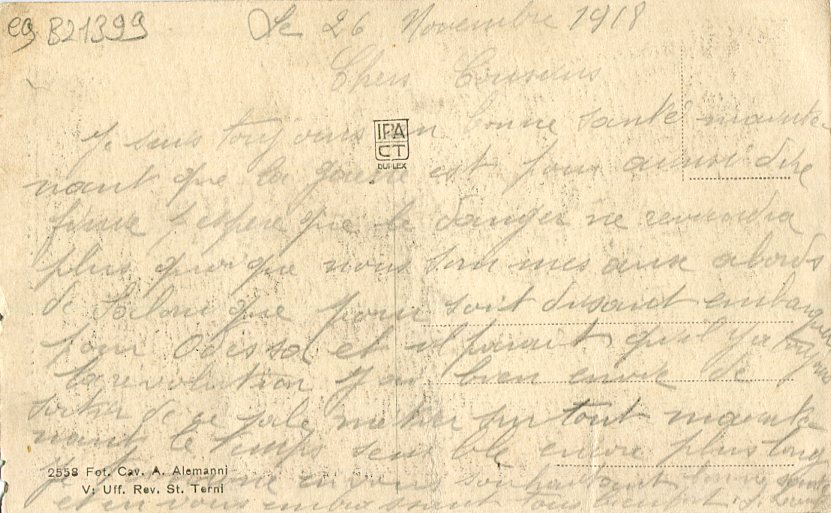 eg B21399
Le 26 Novembre 1918
Chers Cousins
Je suis toujours en bonne santé mainte
nant que la guerre est pour ainsi dire
finie j'espere que le danger ne reviendra
plus quoi que nous sommes aux abords
de Salonique pour soit disant embarquer
pour Odessa et il parait qu'il y a toujours
la revolution j'ai bien envie de
sortir de ce sale métier surtout mainte
nant le temps semble encore plus long
Je en vous souhaitant bonne santé
et en vous embrassant tous
IPA
CT
DUPLEX
2558 Fot. Cav. A. Alemanni
V: Uff. Rev. St. Terni